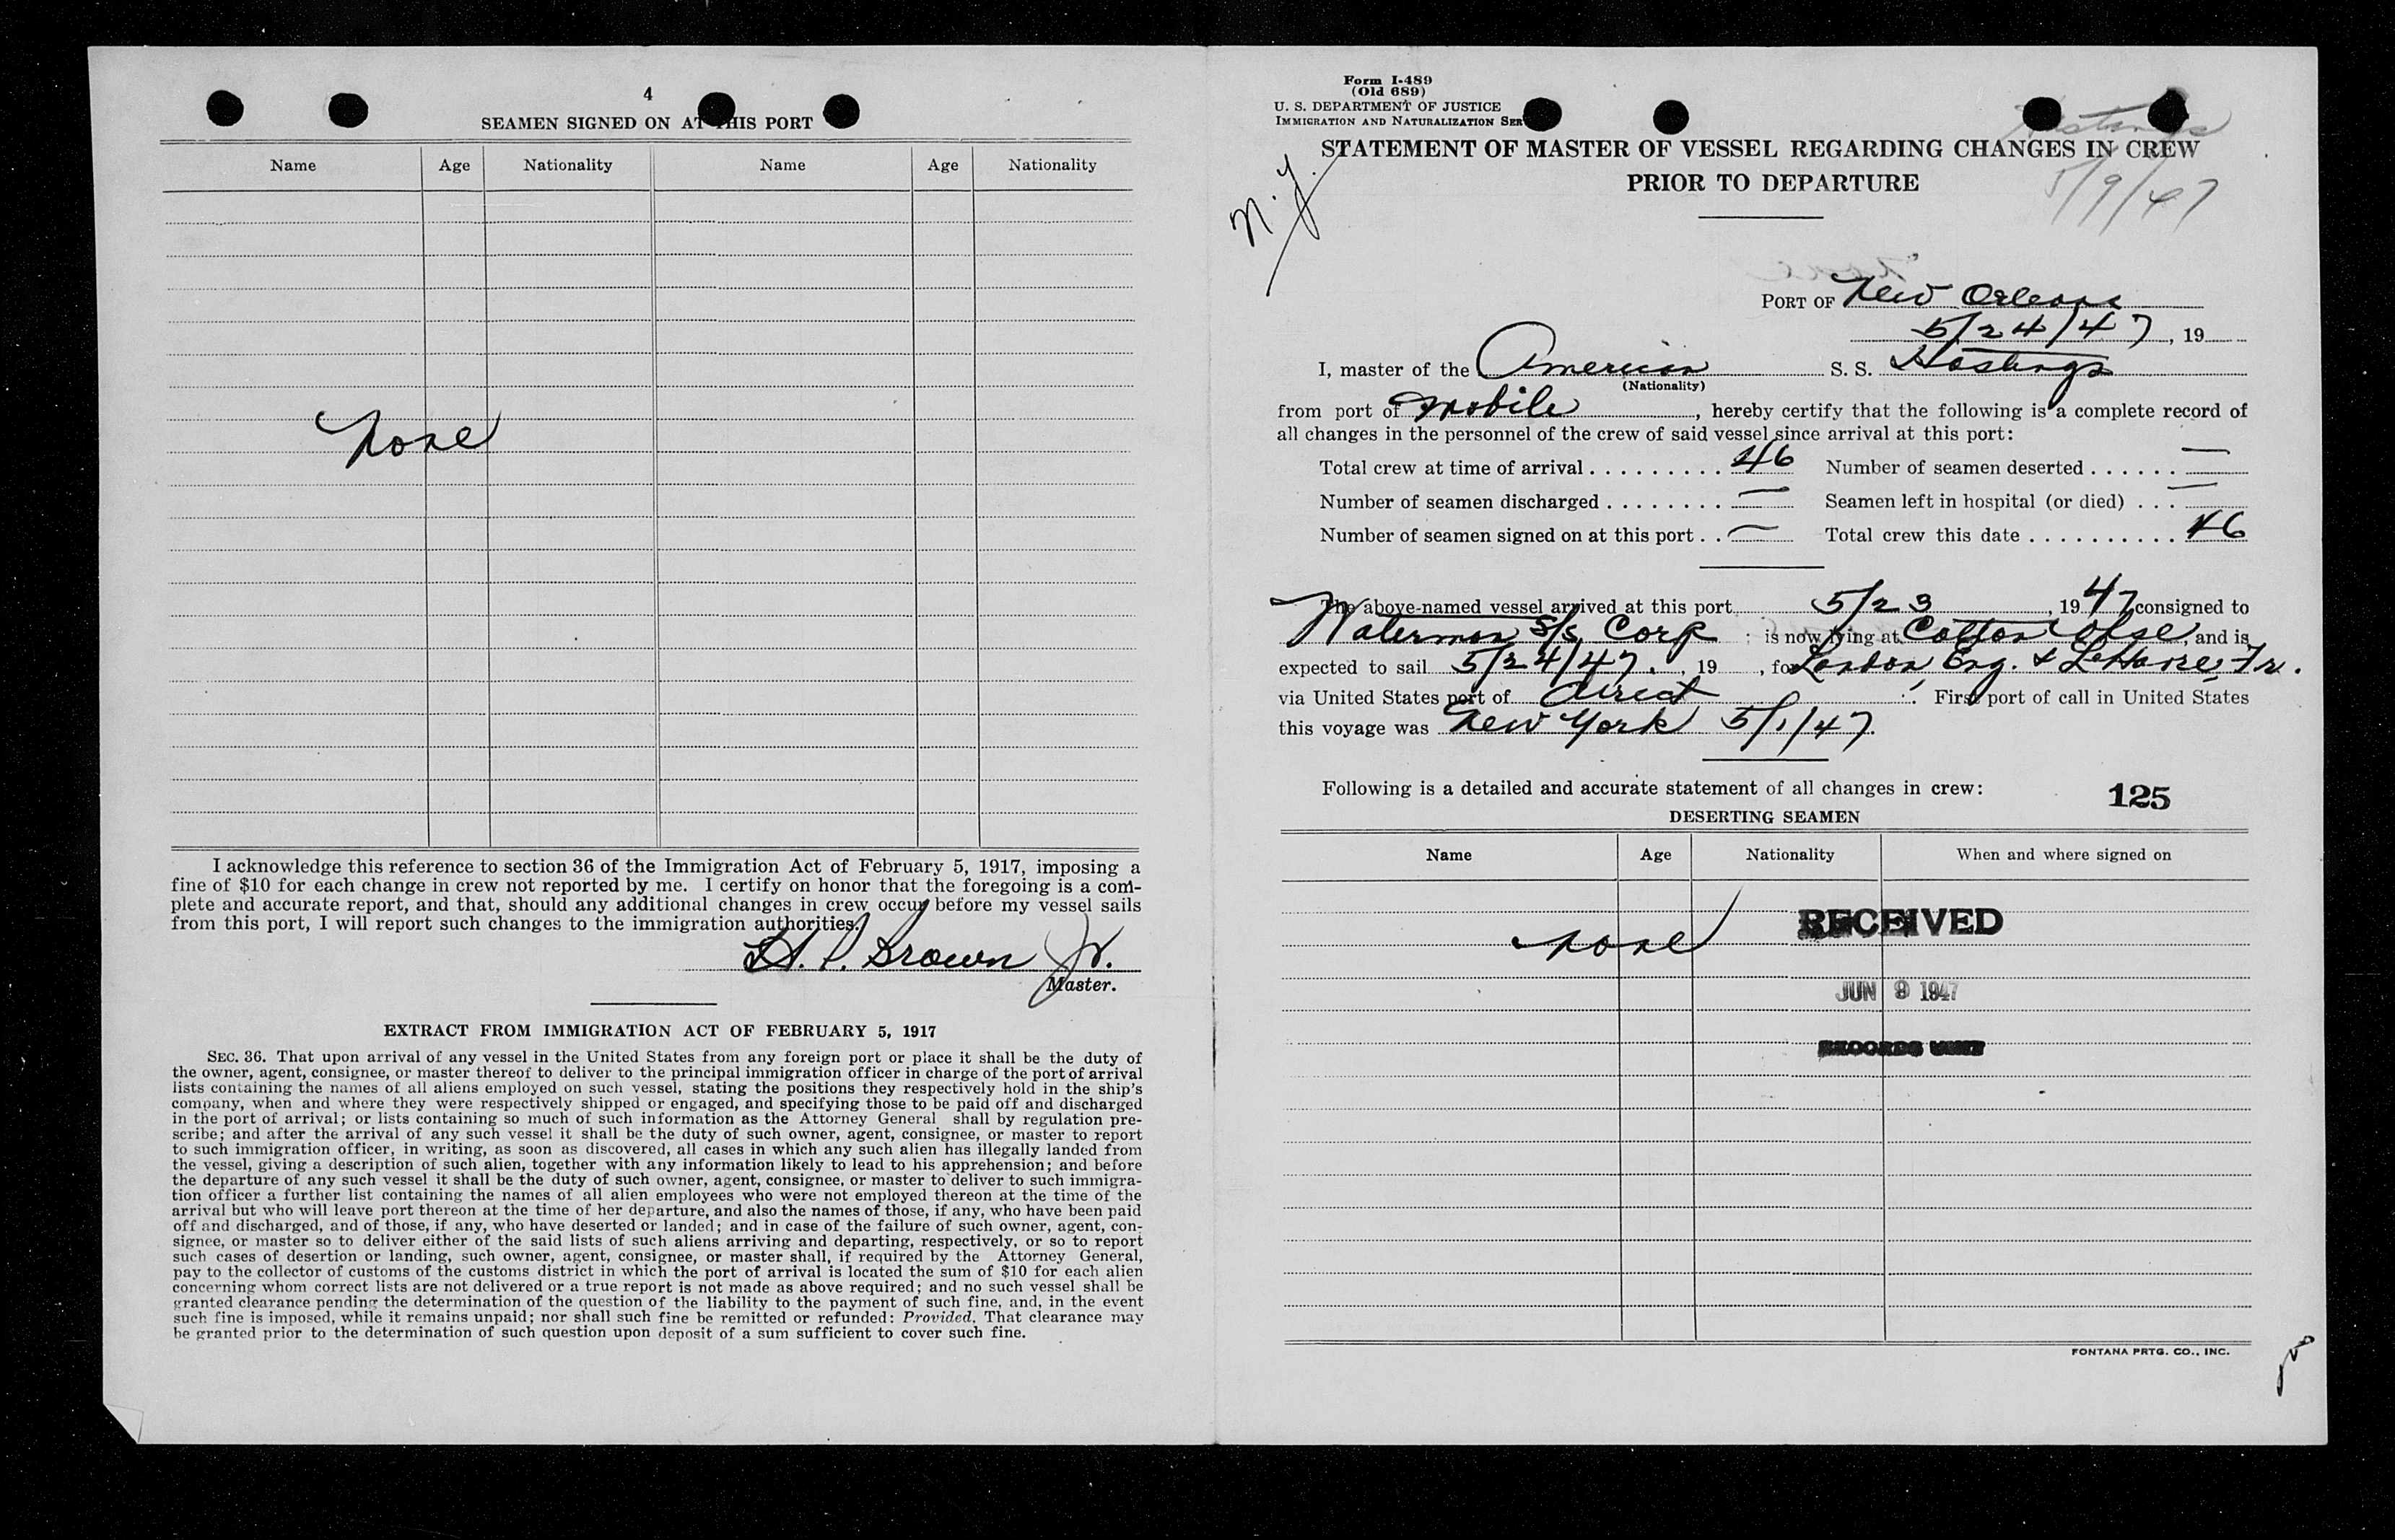 4
SEAMEN SIGNED ON AT THIS PORT
Name Age Nationality Name Age Nationality
None
I acknowledge this reference to section 36 of the Immigration Act of February 5, 1917, imposing a
fine of $10 for each change in crew not reported by me. I certify on honor that the foregoing is a com-
plete and accurate report, and that, should any additional changes in crew occur before my vessel sails
from this port, I will report such changes to the immigration authorities.
H. P. Brown Jr.
Master.
EXTRACT FROM IMMIGRATION ACT OF FEBRUARY 5, 1917
SEC. 36. That upon arrival of any vessel in the United States from any foreign port or place it shall be the duty of
the owner, agent, consignee, or master thereof to deliver to the principal immigration officer in charge of the port of arrival
lists containing the names of all aliens employed on such vessel, stating the positions they respectively hold in the ship's
company, when and where they were respectively shipped or engaged, and specifying those to be paid off and discharged
in the port of arrival; or lists containing so much of such information as the Attorney General shall by regulation pre-
scribe; and after the arrival of any such vessel it shall be the duty of such owner, agent, consignee, or master to report
to such immigration officer, in writing, as soon as discovered, all cases in which any such alien has illegally landed from
the vessel, giving a description of such alien, together with any information likely to lead to his apprehension; and before
the departure of any such vessel it shall be the duty of such owner, agent, consignee, or master to deliver to such immigra-
tion officer a further list containing the names of all alien employees who were not employed thereon at the time of the
arrival but who will leave port thereon at the time of her departure, and also the names of those, if any, who have been paid
off and discharged, and of those, if any, who have deserted or landed; and in case of the failure of such owner, agent, con-
signee, or master so to deliver either of the said lists of such aliens arriving and departing, respectively, or so to report
such cases of desertion or landing, such owner, agent, consignee, or master shall, if required by the Attorney General,
pay to the collector of customs of the customs district in which the port of arrival is located the sum of $10 for each alien
concerning whom correct lists are not delivered or a true report is not made as above required; and no such vessel shall be
granted clearance pending the determination of the question of the liability to the payment of such fine, and, in the event
such fine is imposed, while it remains unpaid; nor shall such fine be remitted or refunded: Provided, That clearance may
be granted prior to the determination of such question upon deposit of a sum sufficient to cover such fine.
Form I-489
(Old 689)
U. S. DEPARTMENT OF JUSTICE
IMMIGRATION AND NATURALIZATION SER
Hastings
STATEMENT OF MASTER OF VESSEL REGARDING CHANGES IN CREW
PRIOR TO DEPARTURE
5/9/47
N.Y.
PORT OF New Orleans
5/24/47, 19
I, master of the American S. S. Hastings
(Nationality)
from port of Mobile, hereby certify that the following is a complete record of
all changes in the personnel of the crew of said vessel since arrival at this port:
Total crew at time of arrival . . . . . . . . . 46 Number of seamen deserted . . . . . . —
Number of seamen discharged . . . . . . . . — Seamen left in hospital (or died) . . . —
Number of seamen signed on at this port . . — Total crew this date . . . . . . . . . . 46
The above-named vessel arrived at this port 5/23, 1947 consigned to
Waterman S/S Corp ; is now lying at Cotton Whse, and is
expected to sail 5/24/47. , 19 , for London Eng. & LeHavre Fr.
via United States port of direct : First port of call in United States
this voyage was New York 5/1/47.
Following is a detailed and accurate statement of all changes in crew: 125
DESERTING SEAMEN
Name Age Nationality When and where signed on
None
RECEIVED
JUN 9 1947
RECORDS UNIT
FONTANA PRTG. CO., INC.